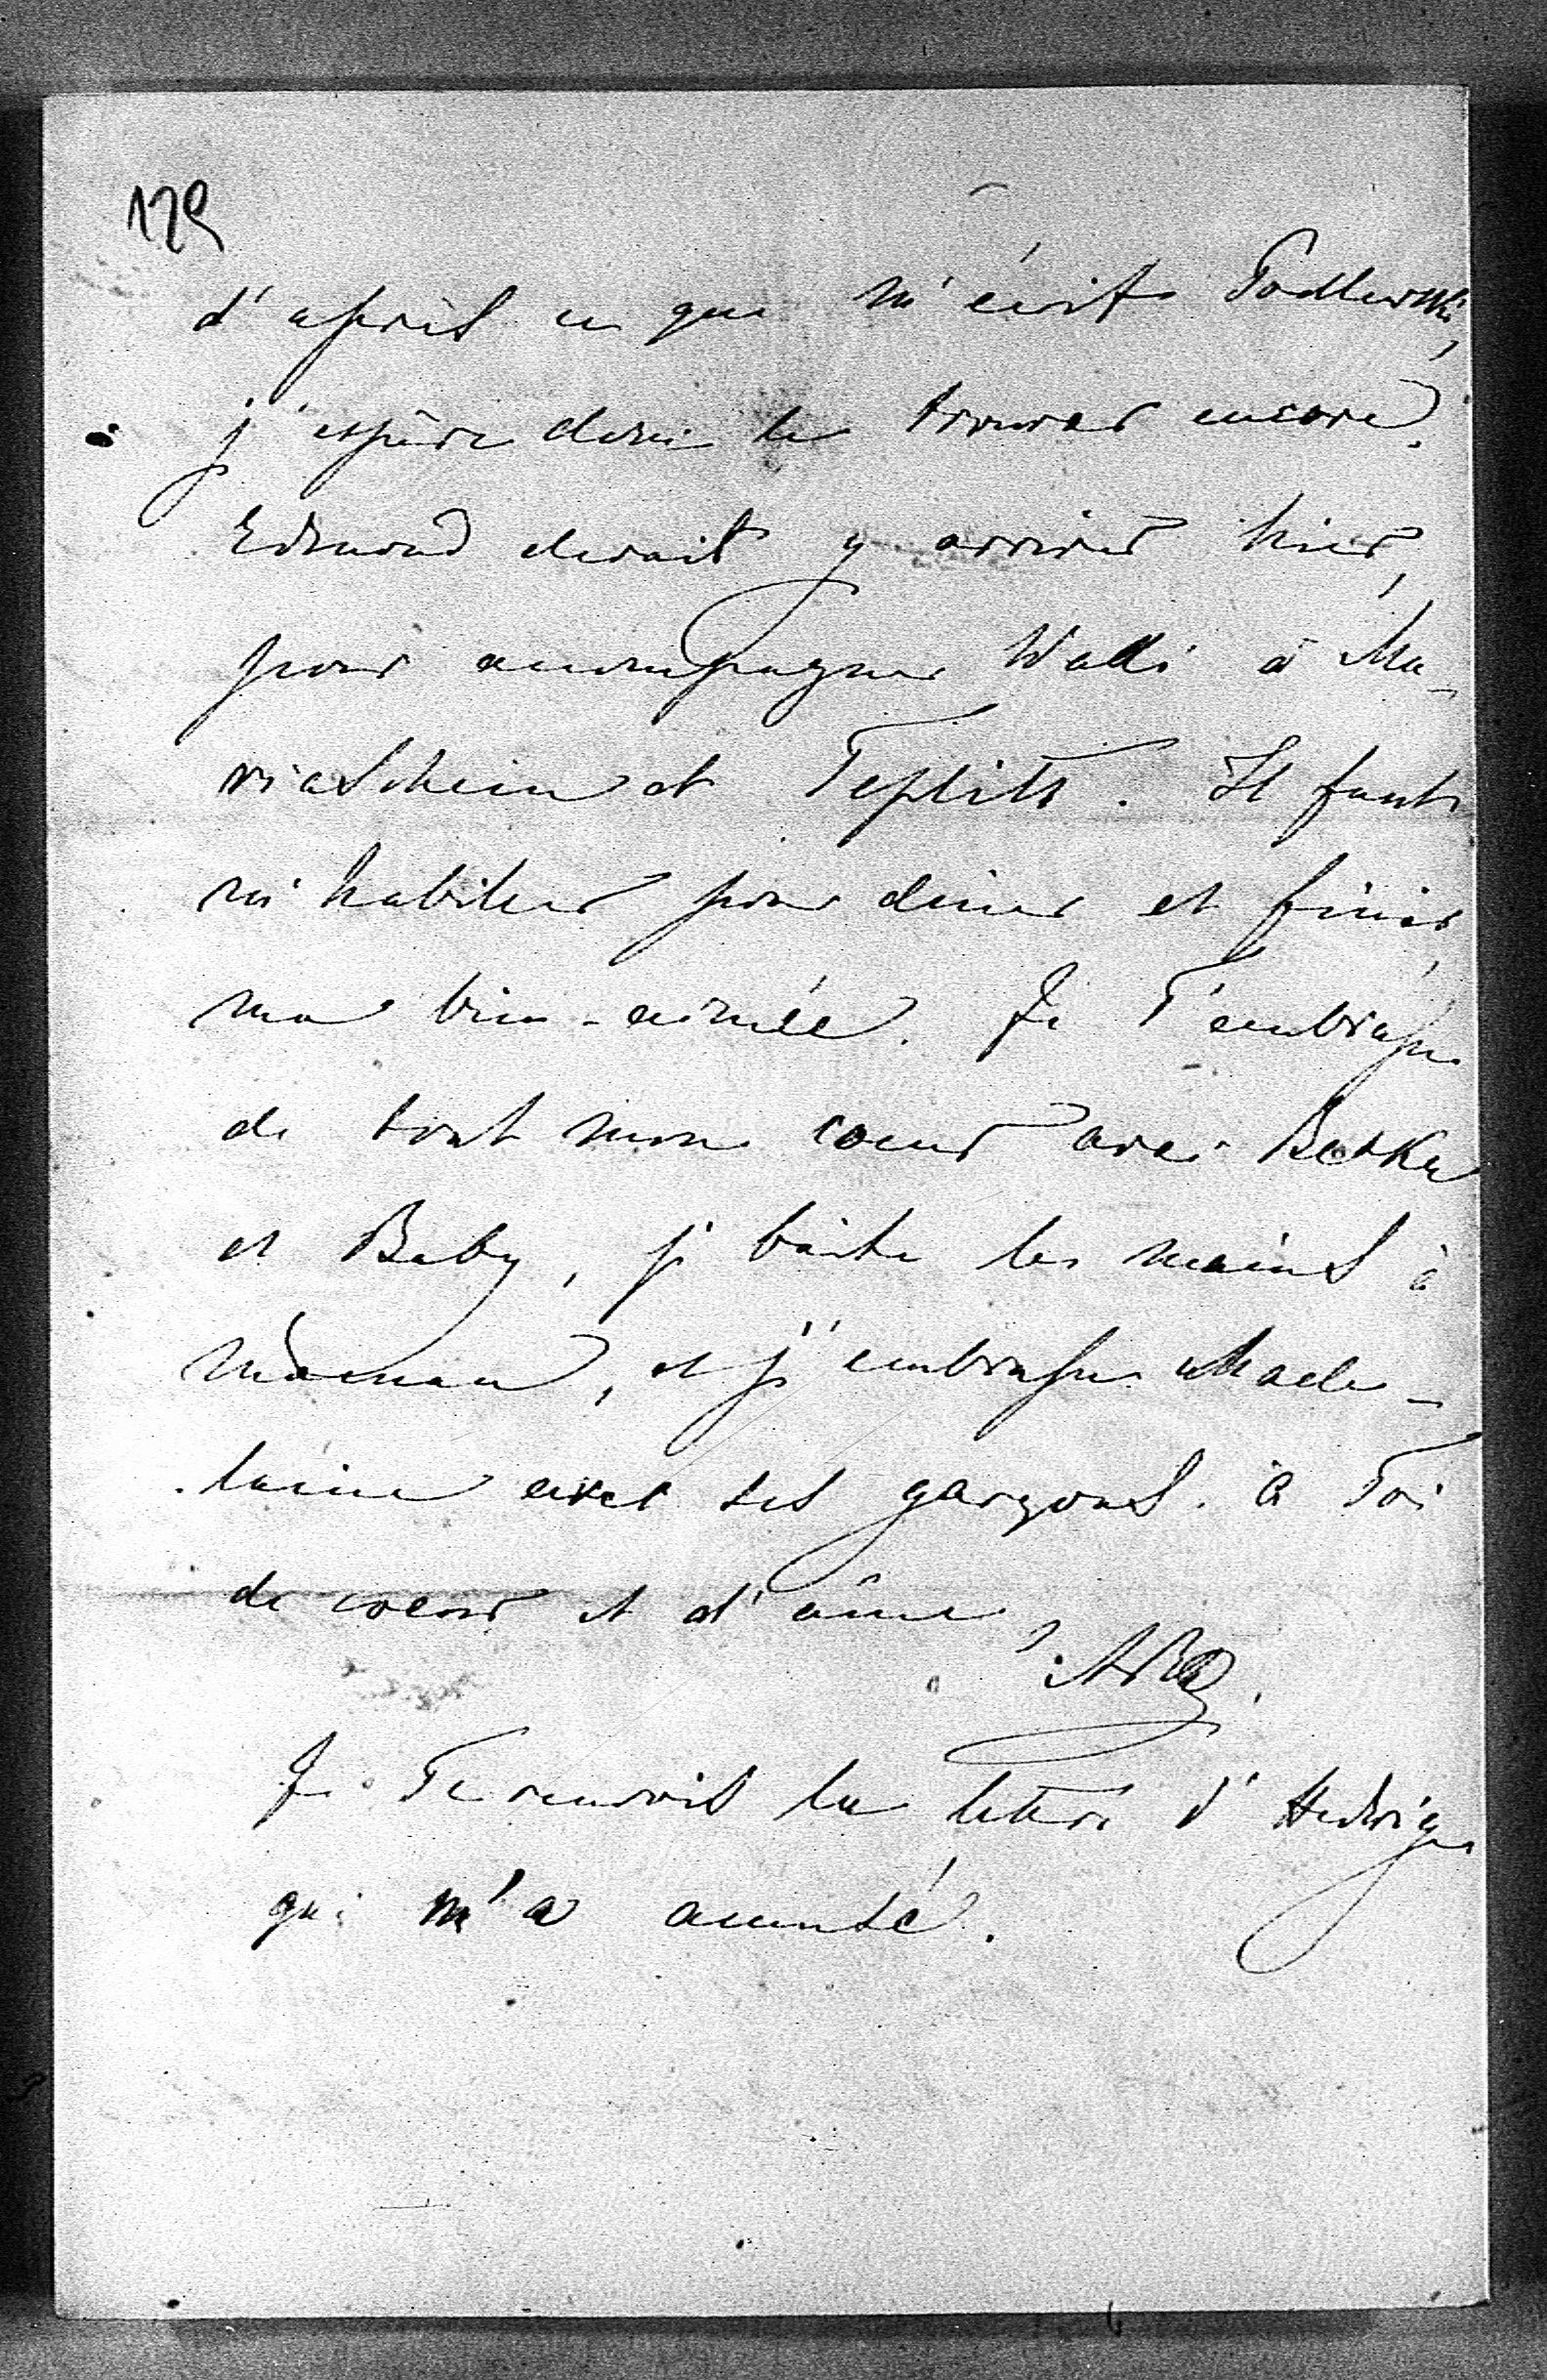 179
d'après ce que m'écrit Podlewski,
j'espère donc le trouver encore.
Edmond devait y arriver hier,
pour accompagner Walli à Ma-
riaschein et Teplitz. Il faut
m'habiller pour diner et finir,
ma bien-aimée. Je T'embrasse
de tout mon coeur avec Betka
et Baby, je baise les mains à
maman, et j'embrasse Made-
leine avec ses garçons. à Toi
de coeur et d'âme,
Je Te renvois la lettre d'Hedwige
qui m'a amusé.